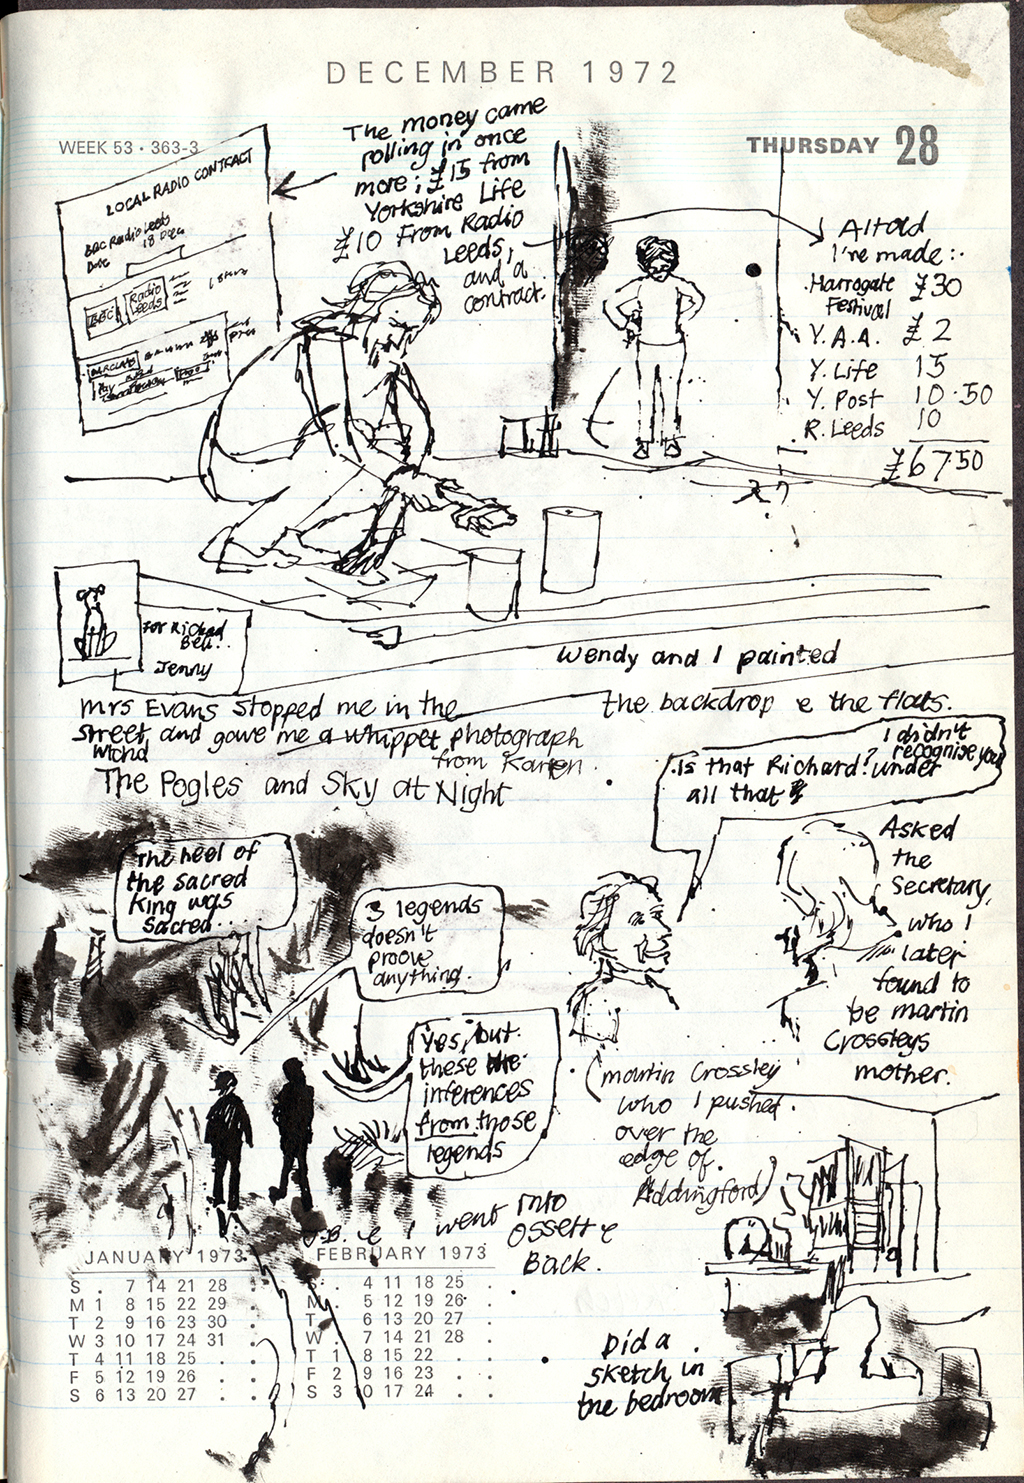 DECEMBER 1972
WEEK 53 · 363-3
THURSDAY 28
LOCAL RADIO CONTRACT
BBC Radio Leeds
Date 18 Dec
BBC
Radio
Leeds
BARCLAYS
Pay
The money came
rolling in once
more; £15 from
Yorkshire Life
£10 From Radio
Leeds,
and a
contract.
Altold
I're made:.
Harrogate £30
Festival
Y.A.A. £2
Y. Life 15
Y. Post 10·50
R. Leeds 10
£67.50
For Richad
Bell..
Jenny
Wendy and I painted
the backdrop e the flats.
Mrs Evans stopped me in the
street, and gave me a whippet photograph
from Karen.
The Pogles and Sky at Night
I didn't
recognise you
Is that Richard? under
all that
The heel of
the sacred
King was
Sacred...
3 legends
doesn't
proove
anything.
Yes, but
these the
inferences
from those
legends
Asked
the
Secretary,
who I
later
found to
be martin
Crossleys
mother.
(martin Crossley
who I pushed
over the
edge of
Addingford)
e I went into
Ossett e
Back.
JANUARY 1973
S . 7 14 21 28 .
M 1 8 15 22 29 .
T 2 9 16 23 30 .
W 3 10 17 24 31 .
T 4 11 18 25 . .
F 5 12 19 26 . .
S 6 13 20 27 . .
FEBRUARY 1973
S . 4 11 18 25 .
M . 5 12 19 26 .
T 6 13 20 27 .
W 7 14 21 28 .
T 1 8 15 22 . .
F 2 9 16 23 . .
S 3 10 17 24 . .
Did a
sketch in
the bedroom